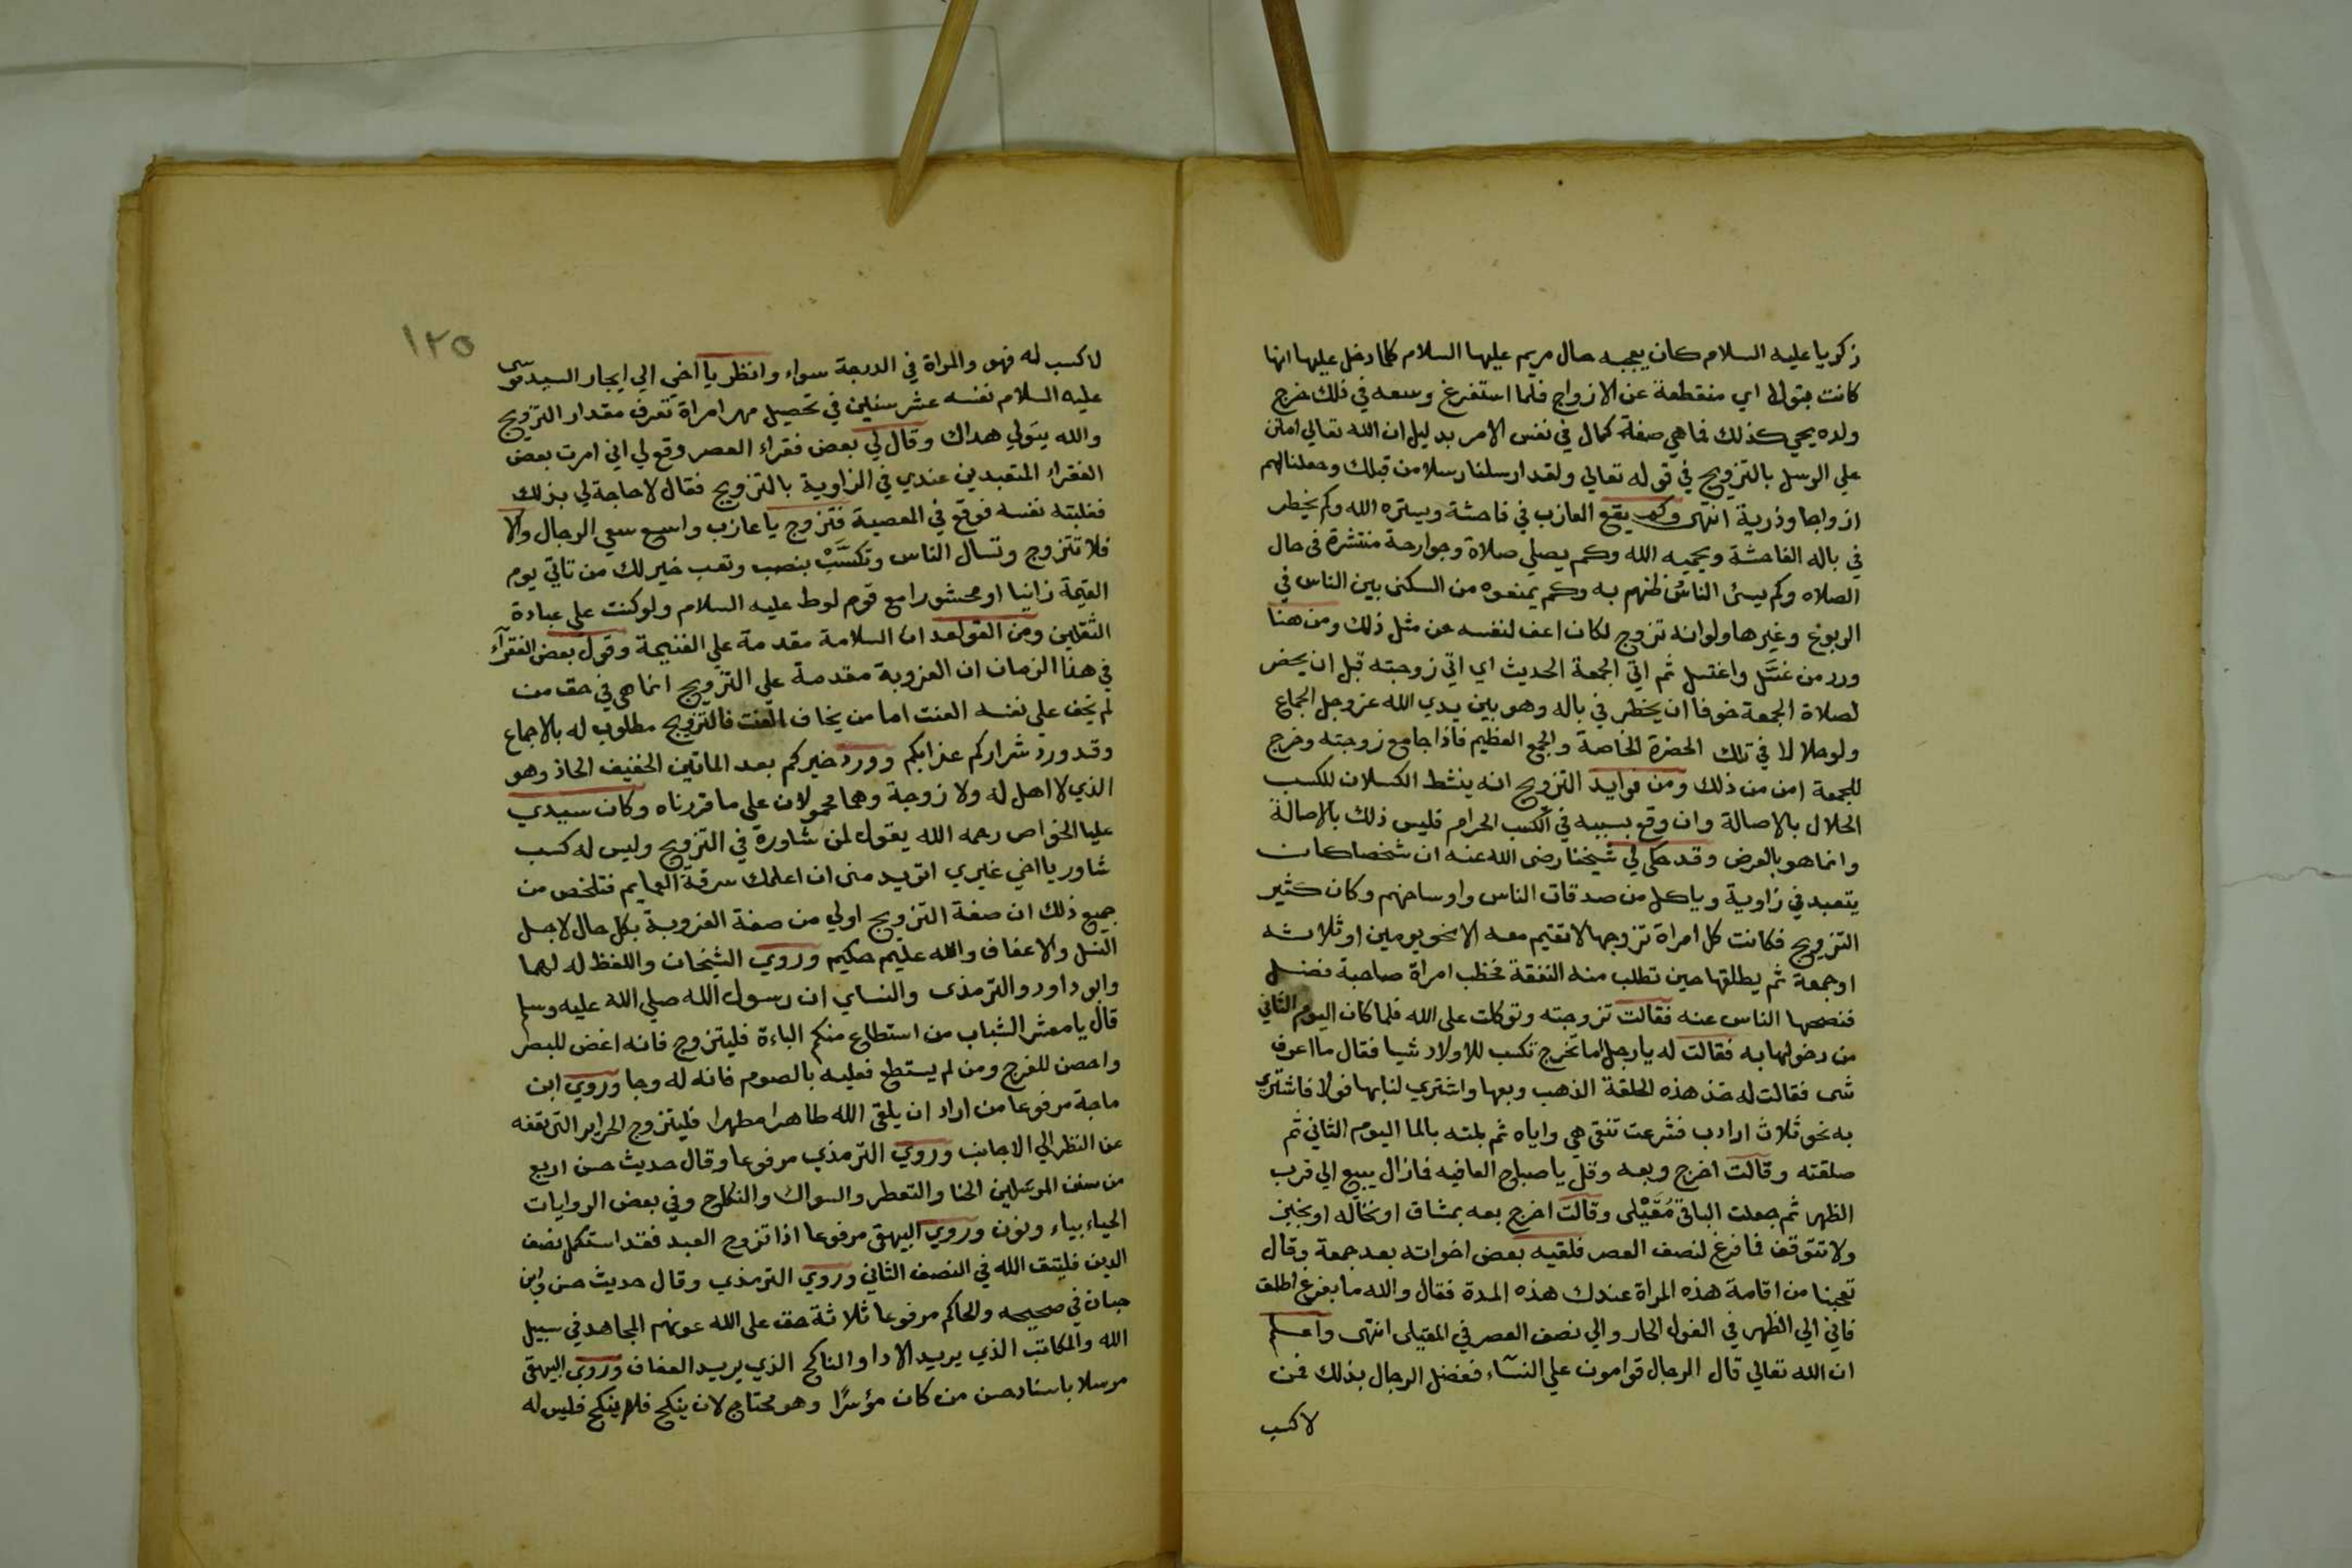 زكريا عليه السلام كان يعجبه حال مريم عليها السلام كلما دخل عليها انها
كانت بتولا اي منقطعة عن الازواج فلما استفرغ وسعه في ذلك خرج
ولده يحي كذلك فما هي صفة كمال في نفس الامر بدليل ان الله تعالي امتن
علي الرسل بالتزويج في قوله تعالي ولقد ارسلنا رسلا من قبلك وجعلنا لهم
ازواجا وذرية انتهى وكم يقع العازب في فاحشة ويستره الله وكم يخطر
في باله الفاحشة ويحميه الله وكم يصلي صلاة وجوارحة منتشرة في حال
الصلاه وكم يسئ الناس ظنهم به وكم يمنعوه من السكنى بين الناس في
الربوع وغيرها ولو انه تزوج لكان اعف لنفسه من مثل ذلك ومن هنا
ورد من غسّل واغتسل ثم اتي الجمعة الحديث اي اتي زوجته قبل ان يحضر
لصلاة الجمعة خوفا ان يخطر في باله وهو بين يدي الله عز وجل الجماع
ولو حلالا في تلك الحضرة الخاصة والجمع العظيم فاذا جامع زوجته وخرج
للجمعة امن من ذلك ومن فوايد التزويج انه ينشط الكسلان للكسب
الحلال بالاصالة وان وقع بسببه في الكسب الحرام فليس ذلك بالاصالة
وانما هو بالعرض وقد حكى لي شيخنا رضى الله عنه ان شخصا كان
يتعبد في زاوية وياكل من صدقات الناس واوساخهم وكان كثير
التزويج فكانت كل امراة تزوجها لا تقيم معه الا نحو يومين او ثلاثه
او جمعة ثم يطلقها حين تطلب منه النفقة فخطب امراة صاحبة فضل
فنصحها الناس عنه فقالت تزوجته وتوكلت على الله فلما كان اليوم الثاني
من دخولها به فقالت له يا رجل اما تخرج تكسب للاولاد شيا فقال ما اعرف
شى فقالت له خذ هذه الحلقة الذهب وبعها واشتري لنا بها فولا فاشترى
به نحو ثلاث ارادب فشرعت تنقي هي واياه ثم بلته بالما اليوم الثاني ثم
صلقته وقالت اخرج وبعه وقل يا صباح العافيه فما زال يبيع الي قرب
الظهر ثم جعلت الباقي مُقَيْلى وقالت اخرج بعه بمشاق او نخاله او بخبز
ولا تتوقف فما فرغ لنصف العصر فلقيه بعض اخوانه بعد جمعة وقال
تعجبنا من اقامة هذه المراة عندك هذه المدة فقال والله ما بفرغ اطلق
فاني الي الظهر في الفول الحار والي نصف العصر في المقيلى انتهى واعلم
ان الله تعالي قال الرجال قوامون علي النساء ففضل الرجال بذلك فمن
لا كسب
١٢٥
لا كسب له فهو والمراة في الدرجة سواء وانظر يا اخي الي ايجار السيد موسى
عليه السلام نفسه عشر سنين في تحصيل مهر امراة تعرف مقدار التزويج
والله يتولي هداك وقال لي بعض فقراء العصر وقع لي اني امرت بعض
الفقراء المتعبدين عندي في الزاوية بالتزويج فقال لا حاجة لي بذلك
فغلبته نفسه فوقع في المعصية فتزوج يا عازب واسع سعي الرجال والا
فلا تتزوج وتسال الناس وتكسَّبْ بنصب وتعب خير لك من تاتي يوم
القيمة زانيا او محشورا مع قوم لوط عليه السلام ولو كنت علي عبادة
الثقلين ومن القواعد ان السلامة مقدمة علي الغنيمة وقول بعض الفقرآء
في هذا الزمان ان العزوبة مقدمة علي التزويج انما هى في حق من
لم يخف علي نفسه العنت اما من يخاف العنت فالتزويج مطلوب له بالاجماع
وقد ورد شراركم عذابكم وورد خيركم بعد الماتين الخفيف الحاذ وهو
الذي لا اهل له ولا زوجة وهما محمولان علي ما قررناه وكان سيدي
عليا الخواص رحمه الله يقول لمن شاورة في التزويج وليس له كسب
شاور يا اخي غيري اتريد منى ان اعلمك سرقة العمايم فتلخص من
جميع ذلك ان صفة التزويج اولي من صفة العزوبة بكل حال لاجل
النسل والاعفاف والله عليم حكيم وروي الشيخان واللفظ له لهما
وابو داود والترمذى والنساي ان رسول الله صلي الله عليه وسلم
قال يا معشر الشباب من استطاع منكم الباءة فليتزوج فانه اغض للبصر
واحصن للفرج ومن لم يستطع فعليه بالصوم فانه له وجا وروي ابن
ماجة مرفوعا من اراد ان يلقى الله طاهرا مطهرا فليتزوج الحراير التى تقفه
عن النظر الي الاجانب وروي الترمذي مرفوعا وقال حديث حسن اربع
من سنن المرسلين الحنا والتعطر والسواك والنكاح وفي بعض الروايات
الحياء بياء ونون وروي البيهقى مرفوعا اذا تزوج العبد فقد استكمل نصف
الدين فليتق الله في النصف الثاني وروي الترمذي وقال حديث حسن وابن
حبان في صحيحه والحاكم مرفوعا ثلاثة حق على الله عونهم المجاهد في سبيل
الله والمكاتب الذي يريد الادا والناكح الذي يريد العفاف وروي البيهقى
مرسلا باسناد حسن من كان مؤسرًا وهو محتاج لان ينكح فلم ينكح فليس له